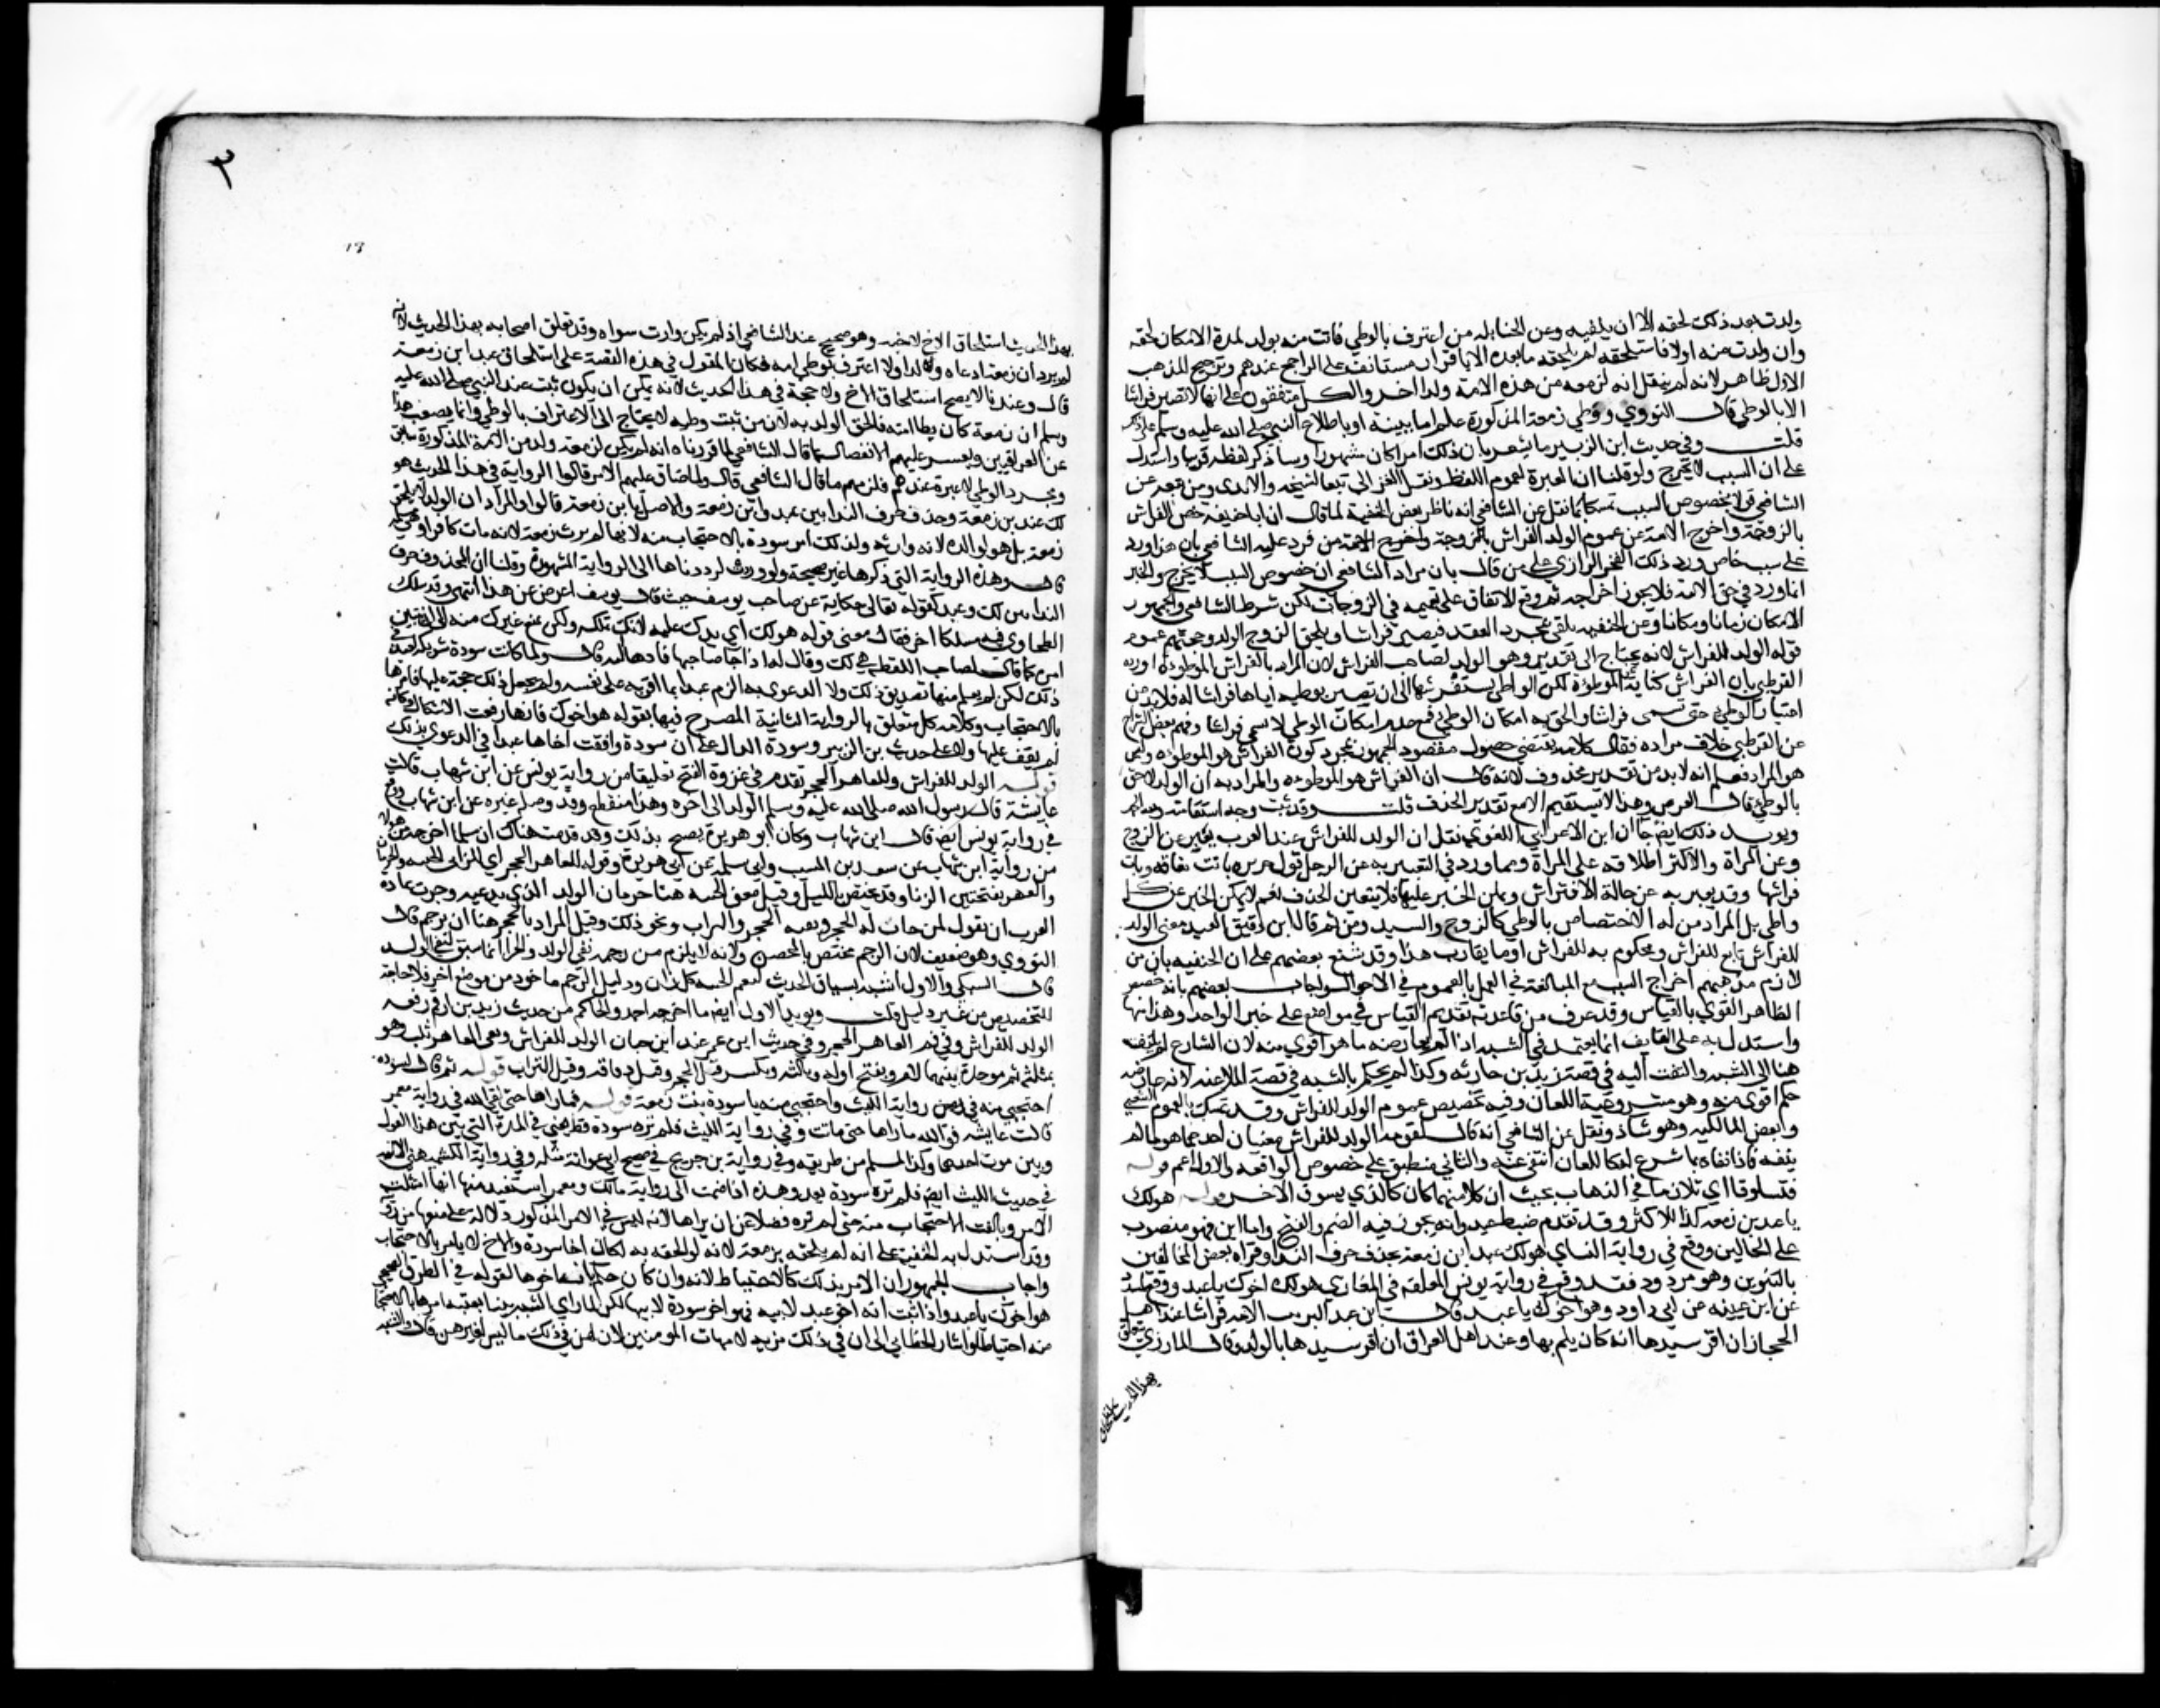 ولدت بعد ذلك لحقه الا ان ينفيه وعن الحنابله من اعترف بالوطي فاتت منه بولد لمدة الامكان لحقه
وان ولدت منه اولا فاستلحقه لم يلحقه ما بعده الا باقرار مستانف على الراجح عندهم وترجيح المذهب
الاول ظاهر لانه لم ينقل انه لزمعه من هذه الامة ولد اخر والكل متفقون على انها لا تصير فراشا
الا بالوطي قال النووي ووطي زمعة المذكورة علم اما ببينة او باطلاع النبي صلى الله عليه وسلم على ذلك
قلت وفي حديث ابن الزبير ما يشعر بان ذلك امرا كان مشهورا وساذكر لفظه قريبا واستدل
على ان السبب لا يخرج ولو قلنا ان العبرة لعموم اللفظ ونقل الغزالي تبعا لشيخه والامدي ومن تبعه عن
الشافعي قولا بخصوص السبب تمسكا بما نقل عن الشافعي انه ناظر بعض الحنفية لما قال ان ابا حنيفه خص الفراش
بالزوجة واخرج الامة عن عموم الولد للفراش فرد عليه الشافعي بان هذا ورد
على سبب خاص ورد ذلك الفخر الرازي على من قال بان مراد الشافعي ان خصوص السبب لا يخرج والخبر
انما ورد في حق الامة فلا يجوز اخراجه ثم وقع الاتفاق على تعميمه في الزوجات لكن شرط الشافعي والجمهور
الامكان زمانا ومكانا وعن الحنفيه يكفي بمجرد العقد فيصير فراشا ويلحق الزوج الولد وحجتهم عموم
قوله الولد للفراش لانه لا يحتاج الى تقدير وهو الولد لصاحب الفراش لان المراد بالفراش الموطوءة ورده
القرطبي بان الفراش كناية عن الموطوة لكن الواطي يستفرشها اي ان يصيرها بوطيه اياها فراشا له فلا بد من
اعتبار الوطي حتى تسمى فراشا والحق به امكان الوطي فمع عدم امكان الوطي لا تسمى فراشا وفهم بعض الشراح
عن القرطبي خلاف مراده فقال كلامه يقتضي حصول مقصود الجمهور بمجرد كون الفراش هو الموطوه وليس
هو المراد فعلم انه لا بد من تقدير محذوف لانه قال ان الفراش هو الموطوه والمراد به ان الولد لاحق
بالوطي قال المعترض وهذا لا يستقيم الا مع تقدير الحذف قلت وقد بينت وجه استقامته بحمد الله
ويويد ذلك ايضا ان ابن الاعرابي اللغوي نقل ان الولد للفراش عند العرب يعبر عن الزوج
وعن المراة والاكثر اطلاقه على المراة ومما ورد في التعبير به عن الرجل قول جرير باتت تعانقه وبات
فراشها وقد يعبر به عن حالة الافتراش ويمكن الخبر عليها فلا يتعين الحذف نعم لا يمكن الخبر عن كل
واطي بل المراد من له الاختصاص بالوطي كالزوج والسيد ومن ثم قال ابن دقيق العيد معنى الولد
للفراش تابع للفراش ومحكوم به للفراش او ما يقارب هذا وقد شنع بعضهم على ان الحنفيه بان من
لازم مذهبهم اخراج السبب مع المبالغة في العمل بالعموم في الاحوال واجاب بعضهم بانه خصص
الظاهر القوي بالقياس وقد عرف من قاعدته تقديم القياس في مواضع على خبر الواحد وهذا منها
واستدل به على القايف انما يعتمد في الشبه اذا لم يعارضه ما هو اقوي منه لان الشارع لم يلتفت
هنا الى الشبه والتفت اليه في قصة زيد بن حارثه وكذا لم يحكم بالشبه في قصة الملاعنه لانه عارضه
حكم اقوي منه وهو مشروعية اللعان وفيه تخصيص عموم الولد للفراش وقد تمسك بالعموم الشعبي
وبعض المالكيه وهو شاذ ونقل عن الشافعي انه قال لقوله الولد للفراش معنيان احدهما هو له ما لم
ينفه فاذا نفاه بما شرع له كاللعان انتفى عنه والثاني منطبق على خصوص الواقعه والاول اعم قوله
فتساوقا اي تلازما في الذهاب بحيث ان كلا منهما كان كالذي يسوق الاخر قوله هو لك
يا عبد بن زمعه كذا للاكثر وقد تقدم ضبط عبد وانه يجوز فيه الضم والفتح واما ابن فهو منصوب
على الحالين ووقع في رواية النساي هو لك عبد ابن زمعة بحذف حرف الندا وقراه بعض المخالفين
بالتنوين وهو مردود فقد وقع في رواية يونس المعلقه في المغازي هو لك هو اخوك يا عبد ووقع لمسدد
عن ابن عيينه عن ابي داود وهو اخوك يا عبد قال ابن عبد البر تثبت الامه فراشا عند اهل
الحجاز ان اقر سيدها انه كان يلم بها وعند اهل العراق ان اقر سيدها بالولد وقال المارزي يتعلق
بهذا الحديث استلحاق
٣
13
بهذا الحديث استلحاق الاخ لاخيه وهو صحيح عند الشافعي اذا لم يكن وارث سواه وقد تعلق اصحابه بهذا الحديث لانه
لم يرد ان زمعة ادعاه ولدا ولا اعترف بوطي امه فكان المعول في هذه القصة على استلحاق عبد ابن زمعة
قال وعندنا لا يصح استلحاق الاخ ولا حجة في هذا الحديث لانه يمكن ان يكون ثبت عند النبي صلى الله عليه
وسلم ان زمعة كان يطا امته فالحق الولد به لان من ثبت وطيه لا يحتاج الى الاعتراف بالوطي وانما يصعب هذا
عن العراقيين ويعسر عليهم الانفصال عما قال الشافعي لما قررناه انه لم يكن لزمعه ولد من الامة المذكورة سابق
ومجرد الوطي لا عبرة عندهم فلزمهم ما قال الشافعي قال ولما ضاق عليهم الامر قالوا الرواية في هذا الحديث هو
لك عبد بن زمعة وحذف حرف الندا بين عبد وابن زمعة والاصل يا ابن زمعة قالوا والمراد ان الولد لا يلحق
زمعة بل هو لولده لانه وارثه ولذلك امر سودة بالاحتجاب منه لانها لم ترث زمعة لانه مات كافرا وهي مسلمه
قال وهذه الرواية التي ذكرها غير صحيحة ولو وردت لرددناها الى الرواية المشهورة وقلنا ان المحذوف حرف
الندا بين لك وعبد كقوله تعالى حكاية عن صاحب يوسف حيث قال يوسف اعرض عن هذا انتهى وقد سلك
الطحاوي فيه مسلكا اخر فقال معنى قوله هو لك اي يدك عليه لانك تملكه ولكن تمنع غيرك منه الى ان يتبين
امره كما قال لصاحب اللقطه هي لك وقال له اذا جا صاحبها فادها اليه قال ولما كانت سودة شريكة لعبد في
ذلك لكن لم يعلم منها تصديق ذلك ولا الدعوى به الزم عبدا بما اقر به على نفسه ولم يجعل ذلك حجة عليها فامرها
بالاحتجاب وكلامه كله متعقب بالرواية الثانية المصرح فيها بقوله هو اخوك فانها رفعت الاشكال وكانه
لم يقف عليها ولا على حديث بن الزبير وسودة الدال على ان سودة وافقت اخاها عبدا في الدعوي بذلك
قوله الولد للفراش وللعاهر الحجر تقدم في غزوة الفتح تعليقا من رواية يونس عن ابن شهاب قالت
عايشة قال رسول الله صلى الله عليه وسلم الولد الى اخره وهذا منقطع وقد وصله غيره عن ابن شهاب ووقع
في رواية يونس ايضا قال ابن شهاب وكان ابو هريرة يصيح بذلك وقد قدمت هناك ان مسلما اخرجه موصولا
من رواية ابن شهاب عن سعيد بن المسيب وابي سلمة عن ابي هريرة وقوله للعاهر الحجر اي للزاني الخيبه والحرمان
والعهر بفتحتين الزنا وقد يختص بالليل وقيل معنى الخيبه هنا حرمان الولد الذي يدعيه وجرت عادة
العرب ان تقول لمن خاب له الحجر وبفيه الحجر والتراب ونحو ذلك وقيل المراد بالحجر هنا ان يرجم قال
النووي وهو ضعيف لان الرجم مختص بالمحصن ولانه لا يلزم من رجمه نفي الولد والخبر انما سيق لنفي الولد
قال السبكي والاول اشبه بسياق الحديث لتعم الخيبه كل زان ودليل الرجم ماخوذ من موضع اخر فلا حاجة
للتخصيص من غير دليل قلت ويويد الاول ايضا ما اخرجه احمد والحاكم من حديث زيد بن ارقم رفعه
الولد للفراش وفي فم العاهر الحجر وفي حديث ابن عمر عند ابن حبان الولد للفراش وبفي العاهر الاثلب وهو
بمثلثة ثم موحدة بينهما لام وبفتح اوله وثالثه ويكسران قيل الحجر وقيل دقاقه وقيل التراب قوله ثم قال لسوده
احتجبي منه في رواية الليث واحتجبي منه يا سودة بنت زمعة قوله فما راها حتى لقي الله في رواية معمر
قالت عايشه فوالله ما راها حتى ماتت وفي رواية الليث فلم تره سودة قط يعني في المدة التي بين هذا القول
وبين موت احدهما وكذا لمسلم من طريقه وفي رواية بن جريج في صحيح ابي عوانة مثله وفي رواية الكشميهني الاتيه
في حديث الليث ايضا فلم تره سودة بعد وهذه اذا ضمت الى رواية مالك ومعمر استفيد منها انها امتثلت
الامر وبالغت في الاحتجاب منه حتى لم تره فضلا عن ان يراها لانه ليس في الامر المذكور دلالة على منعها من رويته
وقد استدل به الحنفية على انه لم يلحقه بزمعة لانه لو الحقه به لكان اخا سودة والاخ لا يامر بالاحتجاب
واجاب الجمهور ان الامر بذلك كان للاحتياط لانه وان كان حكم بانه اخوها لقوله في الطرق الصحيحة
هو اخوك يا عبد واذا ثبت انه اخو عبد لابيه فهو اخو سودة لابيها لكن لما راي الشبه بينا بعتبه امرها بالاحتجاب
منه احتياطا واشار الخطابي الى ان في ذلك مزية لامهات المومنين لان لهن في ذلك ما ليس لغيرهن قال والشبه